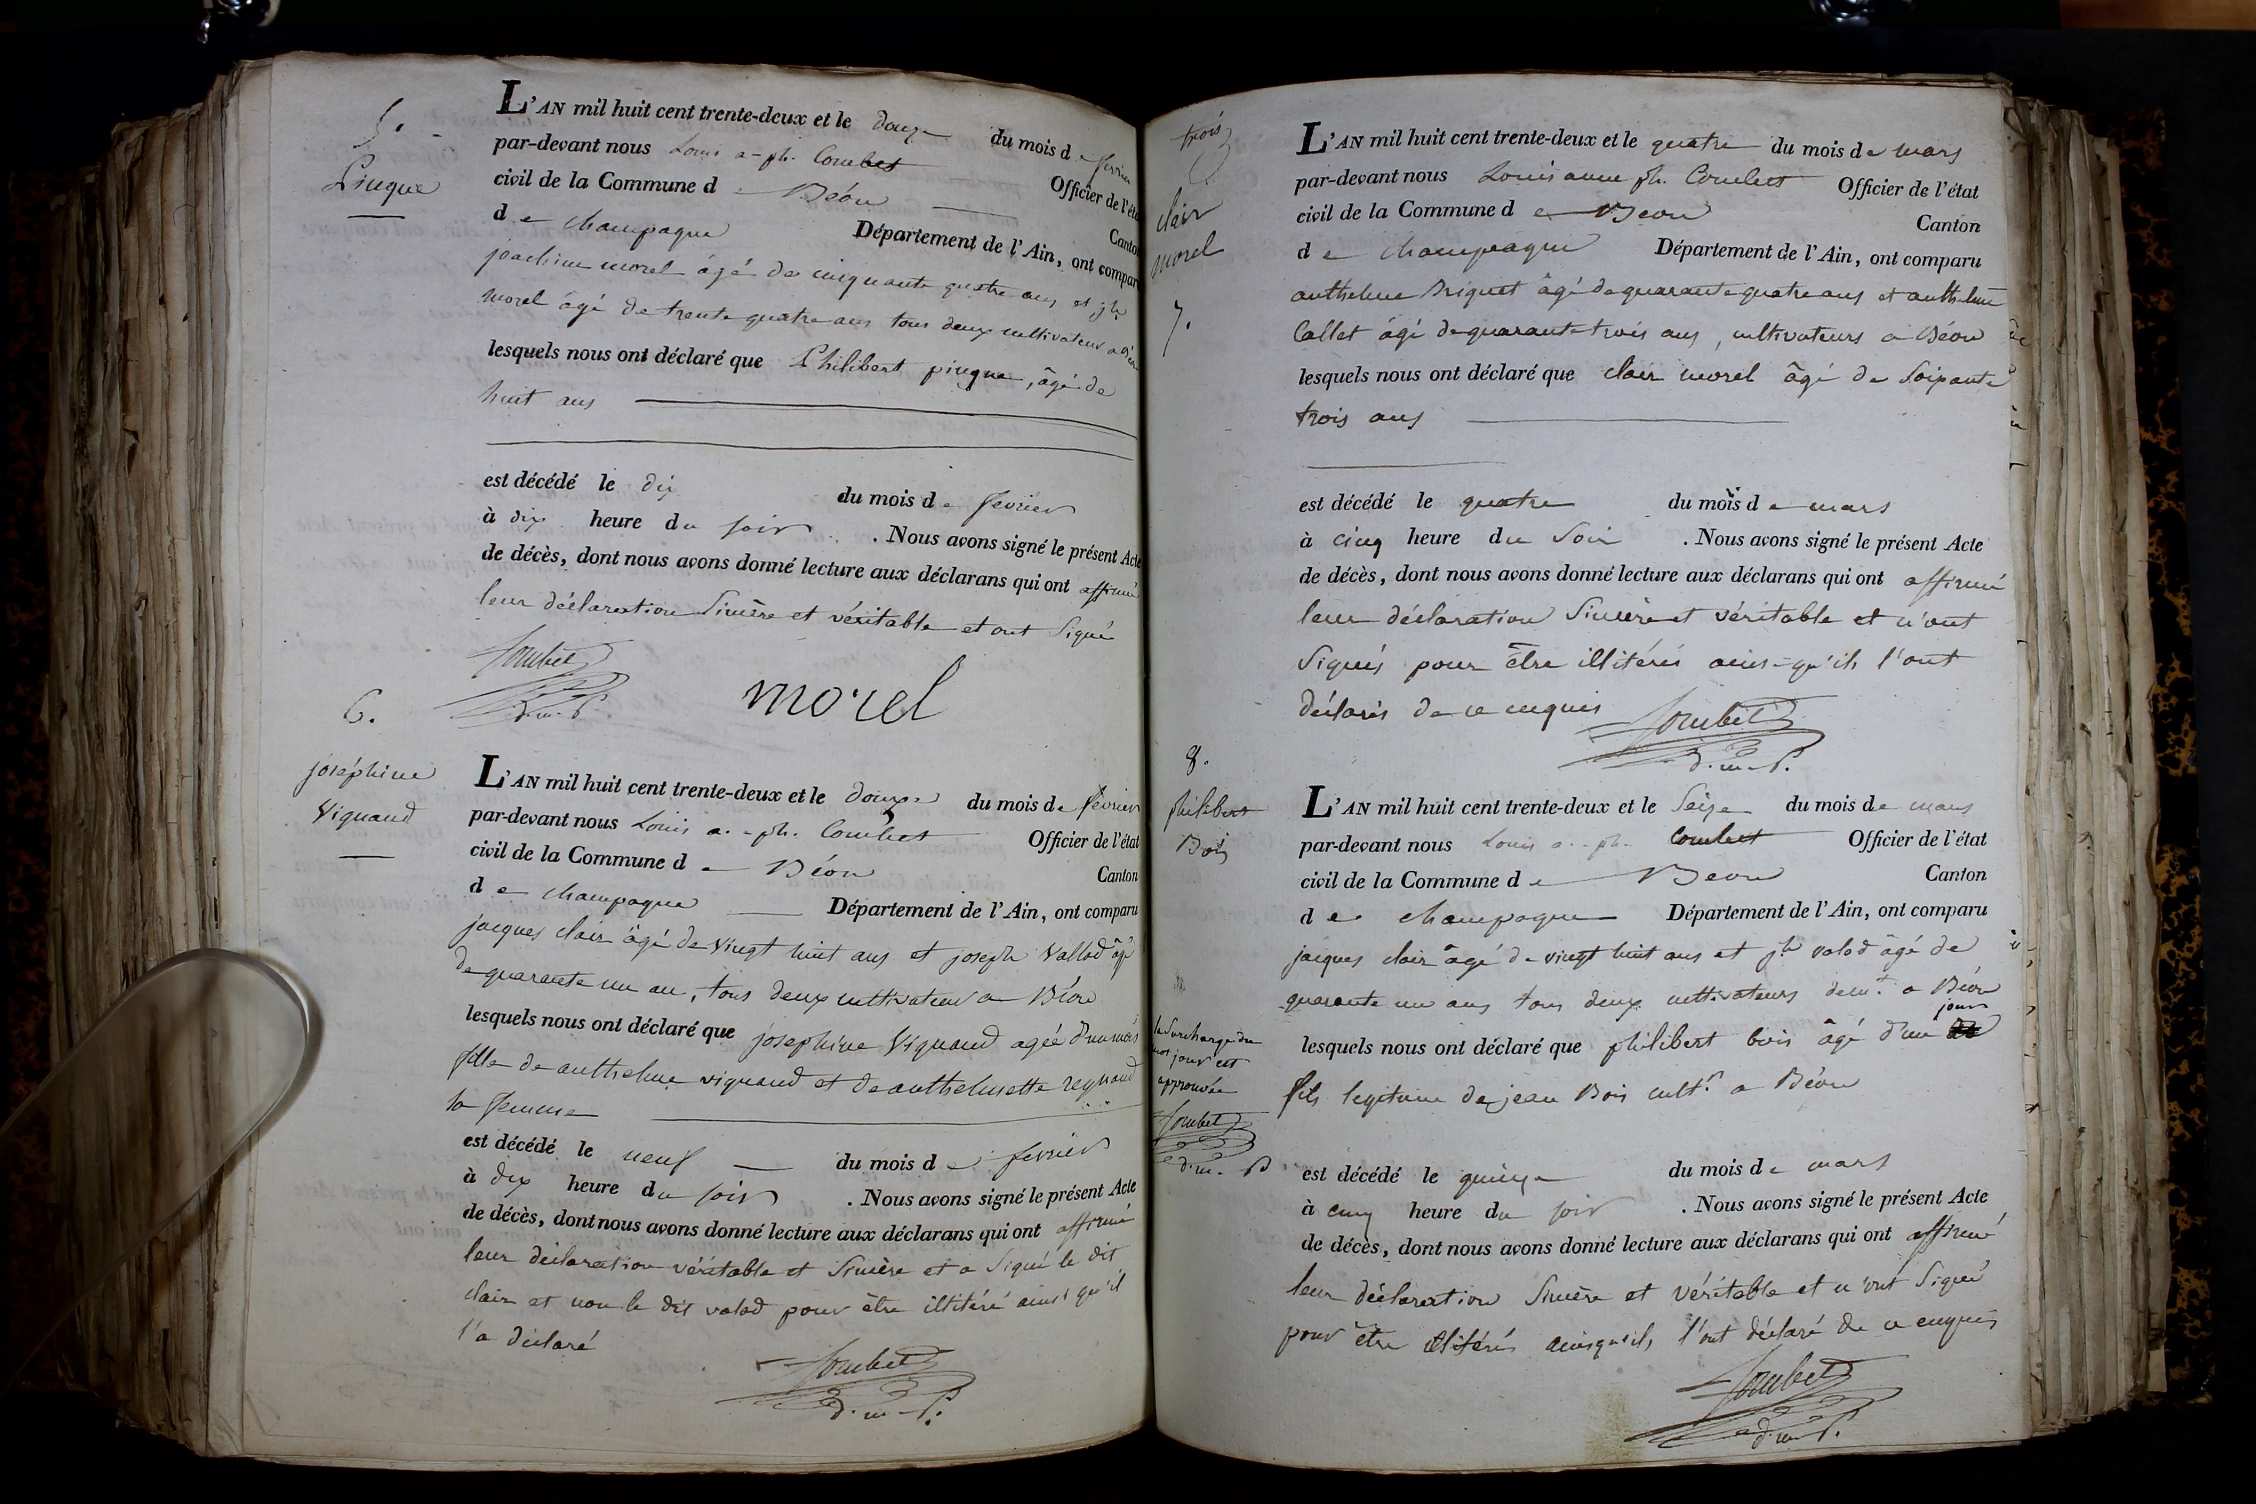 5.
Pingue
L'AN mil huit cent trente-deux et le douze du mois de fevrier
par-devant nous Louis a-ph. Combet Officier de l'état
civil de la Commune de Béon Canton
de champagne Département de l'Ain, ont comparu
joachim morel âgé de cinquante quatre ans et jh.
morel âgé de trente quatre ans tous deux cultivateur a Béon
lesquels nous ont déclaré que Philibert pingue, âgé de
huit ans
est décédé le dix du mois de fevrier
à dix heure du soir. Nous avons signé le présent Acte
de décès, dont nous avons donné lecture aux déclarans qui ont affirmé
leur déclaration Sincère et véritable et ont Signé
Combet
d.m.-P.
morel
6.
joséphine
Viguand
L'AN mil huit cent trente-deux et le douze du mois de février
par-devant nous Louis a.-ph. Combet Officier de l'état
civil de la Commune de Béon Canton
de champagne Département de l'Ain, ont comparu
jacques clair âgé de vingt huit ans et joseph Vallod âgé
de quarante un an, tous deux cultivateur a Béon
lesquels nous ont déclaré que josephine Viguand agée d'un mois
fille de anthelme viguand et de anthelmette reynaud
sa femme
est décédé le neuf du mois de fevrier
à dix heure du soir. Nous avons signé le présent Acte
de décès, dont nous avons donné lecture aux déclarans qui ont affirmé
leur déclaration véritable et Sincère et a Signé le dit
clair et non le dit valod pour être illitéré ainsi qu'il
l'a déclaré
Combet
d.m-P.
trois
clair
morel
7.
L'AN mil huit cent trente-deux et le quatre du mois de mars
par-devant nous Louis anne ph. Combet Officier de l'état
civil de la Commune de Beon Canton
de champagne Département de l'Ain, ont comparu
anthelme Briquet âgé de quarante quatre ans et anthelme
Callet âgé de quarante trois ans, cultivateurs a Béon
lesquels nous ont déclaré que clair morel âgé de Soixante
trois ans
est décédé le quatre du mois de mars
à cinq heure du Soir. Nous avons signé le présent Acte
de décès, dont nous avons donné lecture aux déclarans qui ont affirmé
leur déclaration Sincère et véritable et n'ont
Signés pour être illitérés ainsi-qu'ils l'ont
déclarés de ce enquis
Combet
d.m-P.
8.
philibert
Bois
L'AN mil huit cent trente-deux et le Seize du mois de mars
par-devant nous Louis a.-ph. Combet Officier de l'état
civil de la Commune de Beon Canton
de champagne Département de l'Ain, ont comparu
jacques clair âgé de vingt huit ans et jh valod âgé de
quarante un ans tous deux cultivateurs demt. a Béon
jour
lesquels nous ont déclaré que philibert bois âgé d'un
fils legitime de jean Bois cultr. a Béon
la Surcharge du
mot jour est
approuvée
Combet
d.m-P
est décédé le quinze du mois de mars
à cinq heure du soir. Nous avons signé le présent Acte
de décès, dont nous avons donné lecture aux déclarans qui ont affirmé
leur déclaration Sincère et véritable et n'ont Signé
pour être illitérés ainsi qu'ils l'ont déclaré de ce enquis
Combet
d.m-P.